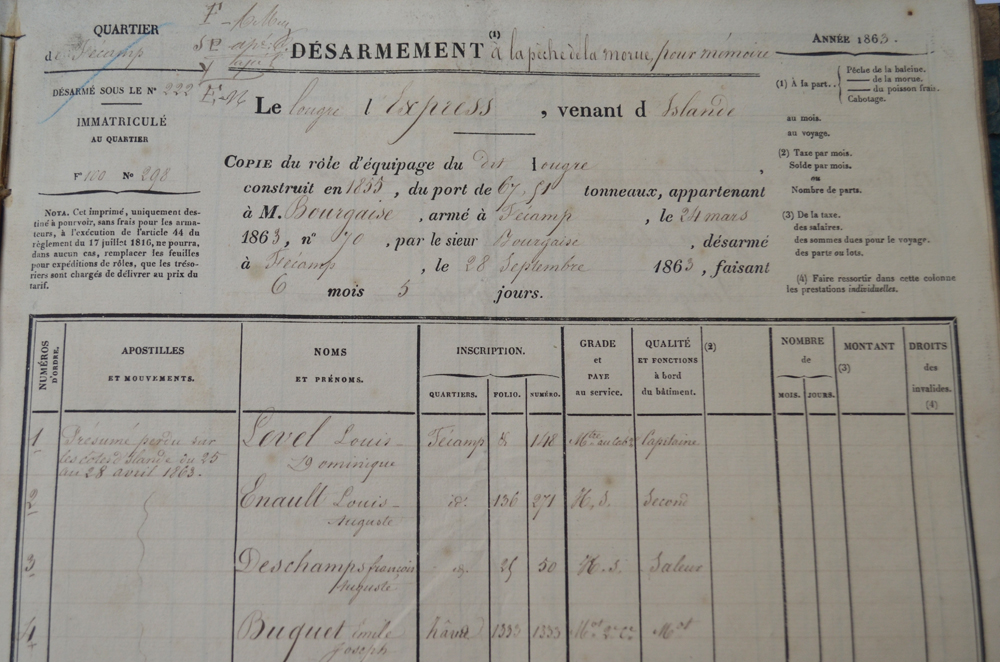 QUARTIER
de Fécamp
DÉSARMÉ SOUS LE N° 222
IMMATRICULÉ
AU QUARTIER
F° 100 N° 298
NOTA. Cet imprimé, uniquement des-
tiné à pourvoir, sans frais pour les arma-
teurs, à l'exécution de l'article 44 du
règlement du 17 juillet 1816, ne pourra,
dans aucun cas, remplacer les feuilles
pour expéditions de rôles, que les tréso-
riers sont chargés de délivrer au prix du
tarif.
DÉSARMEMENT (1) à la pêche de la morue, pour mémoire
Le lougre l'Express, venant d Islande
COPIE du rôle d'équipage du dit lougre,
construit en 1855, du port de 67 51 tonneaux, appartenant
à M. Bourgaise, armé à Fécamp, le 24 mars
1863, n° 70, par le sieur Bourgaise, désarmé
à Fécamp, le 28 Septembre 1863, faisant
6 mois 5 jours.
ANNÉE 1863.
(1) À la part.. Pêche de la baleine.
—— de la morue.
—— du poisson frais.
Cabotage.
au mois.
au voyage.
(2) Taxe par mois.
Solde par mois.
ou
Nombre de parts.
(3) De la taxe.
des salaires.
des sommes dues pour le voyage.
des parts ou lots.
(4) Faire ressortir dans cette colonne
les prestations individuelles.
NUMÉROS D'ORDRE.
APOSTILLES
ET MOUVEMENTS.
NOMS
ET PRÉNOMS.
INSCRIPTION.
QUARTIERS. FOLIO. NUMÉRO.
GRADE
et
PAYE
au service.
QUALITÉ
ET FONCTIONS
à bord
du bâtiment.
(2)
NOMBRE
de
MOIS. JOURS.
MONTANT
(3)
DROITS
des
invalides.
(4)
1 Présumé perdu sur Level Louis- Fécamp 148 Mtre au Cabge Capitaine
les côtes d'Islande du 25 Dominique
au 28 avril 1863.
2 Enault Louis- id. 136 271 H.S. Second
Auguste
3 Deschamps françois id. 25 50 H.S. Saleur
Auguste
4 Buquet Emile hâvre 1333 1333 Mot 2e Ce Mot
Joseph